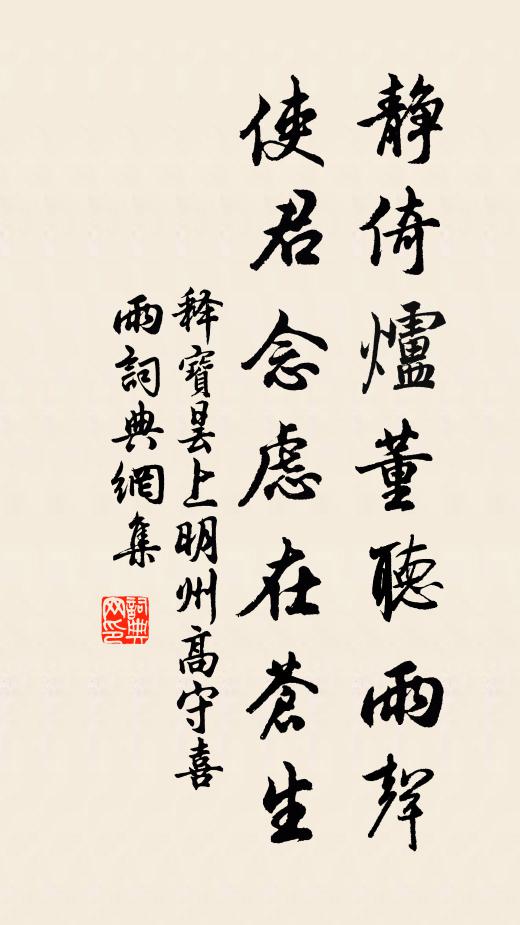 静倚爐董聽雨聲
使君念慮在蒼生
释寶曇上明州高守喜
雨詞典網集
詞典
网印